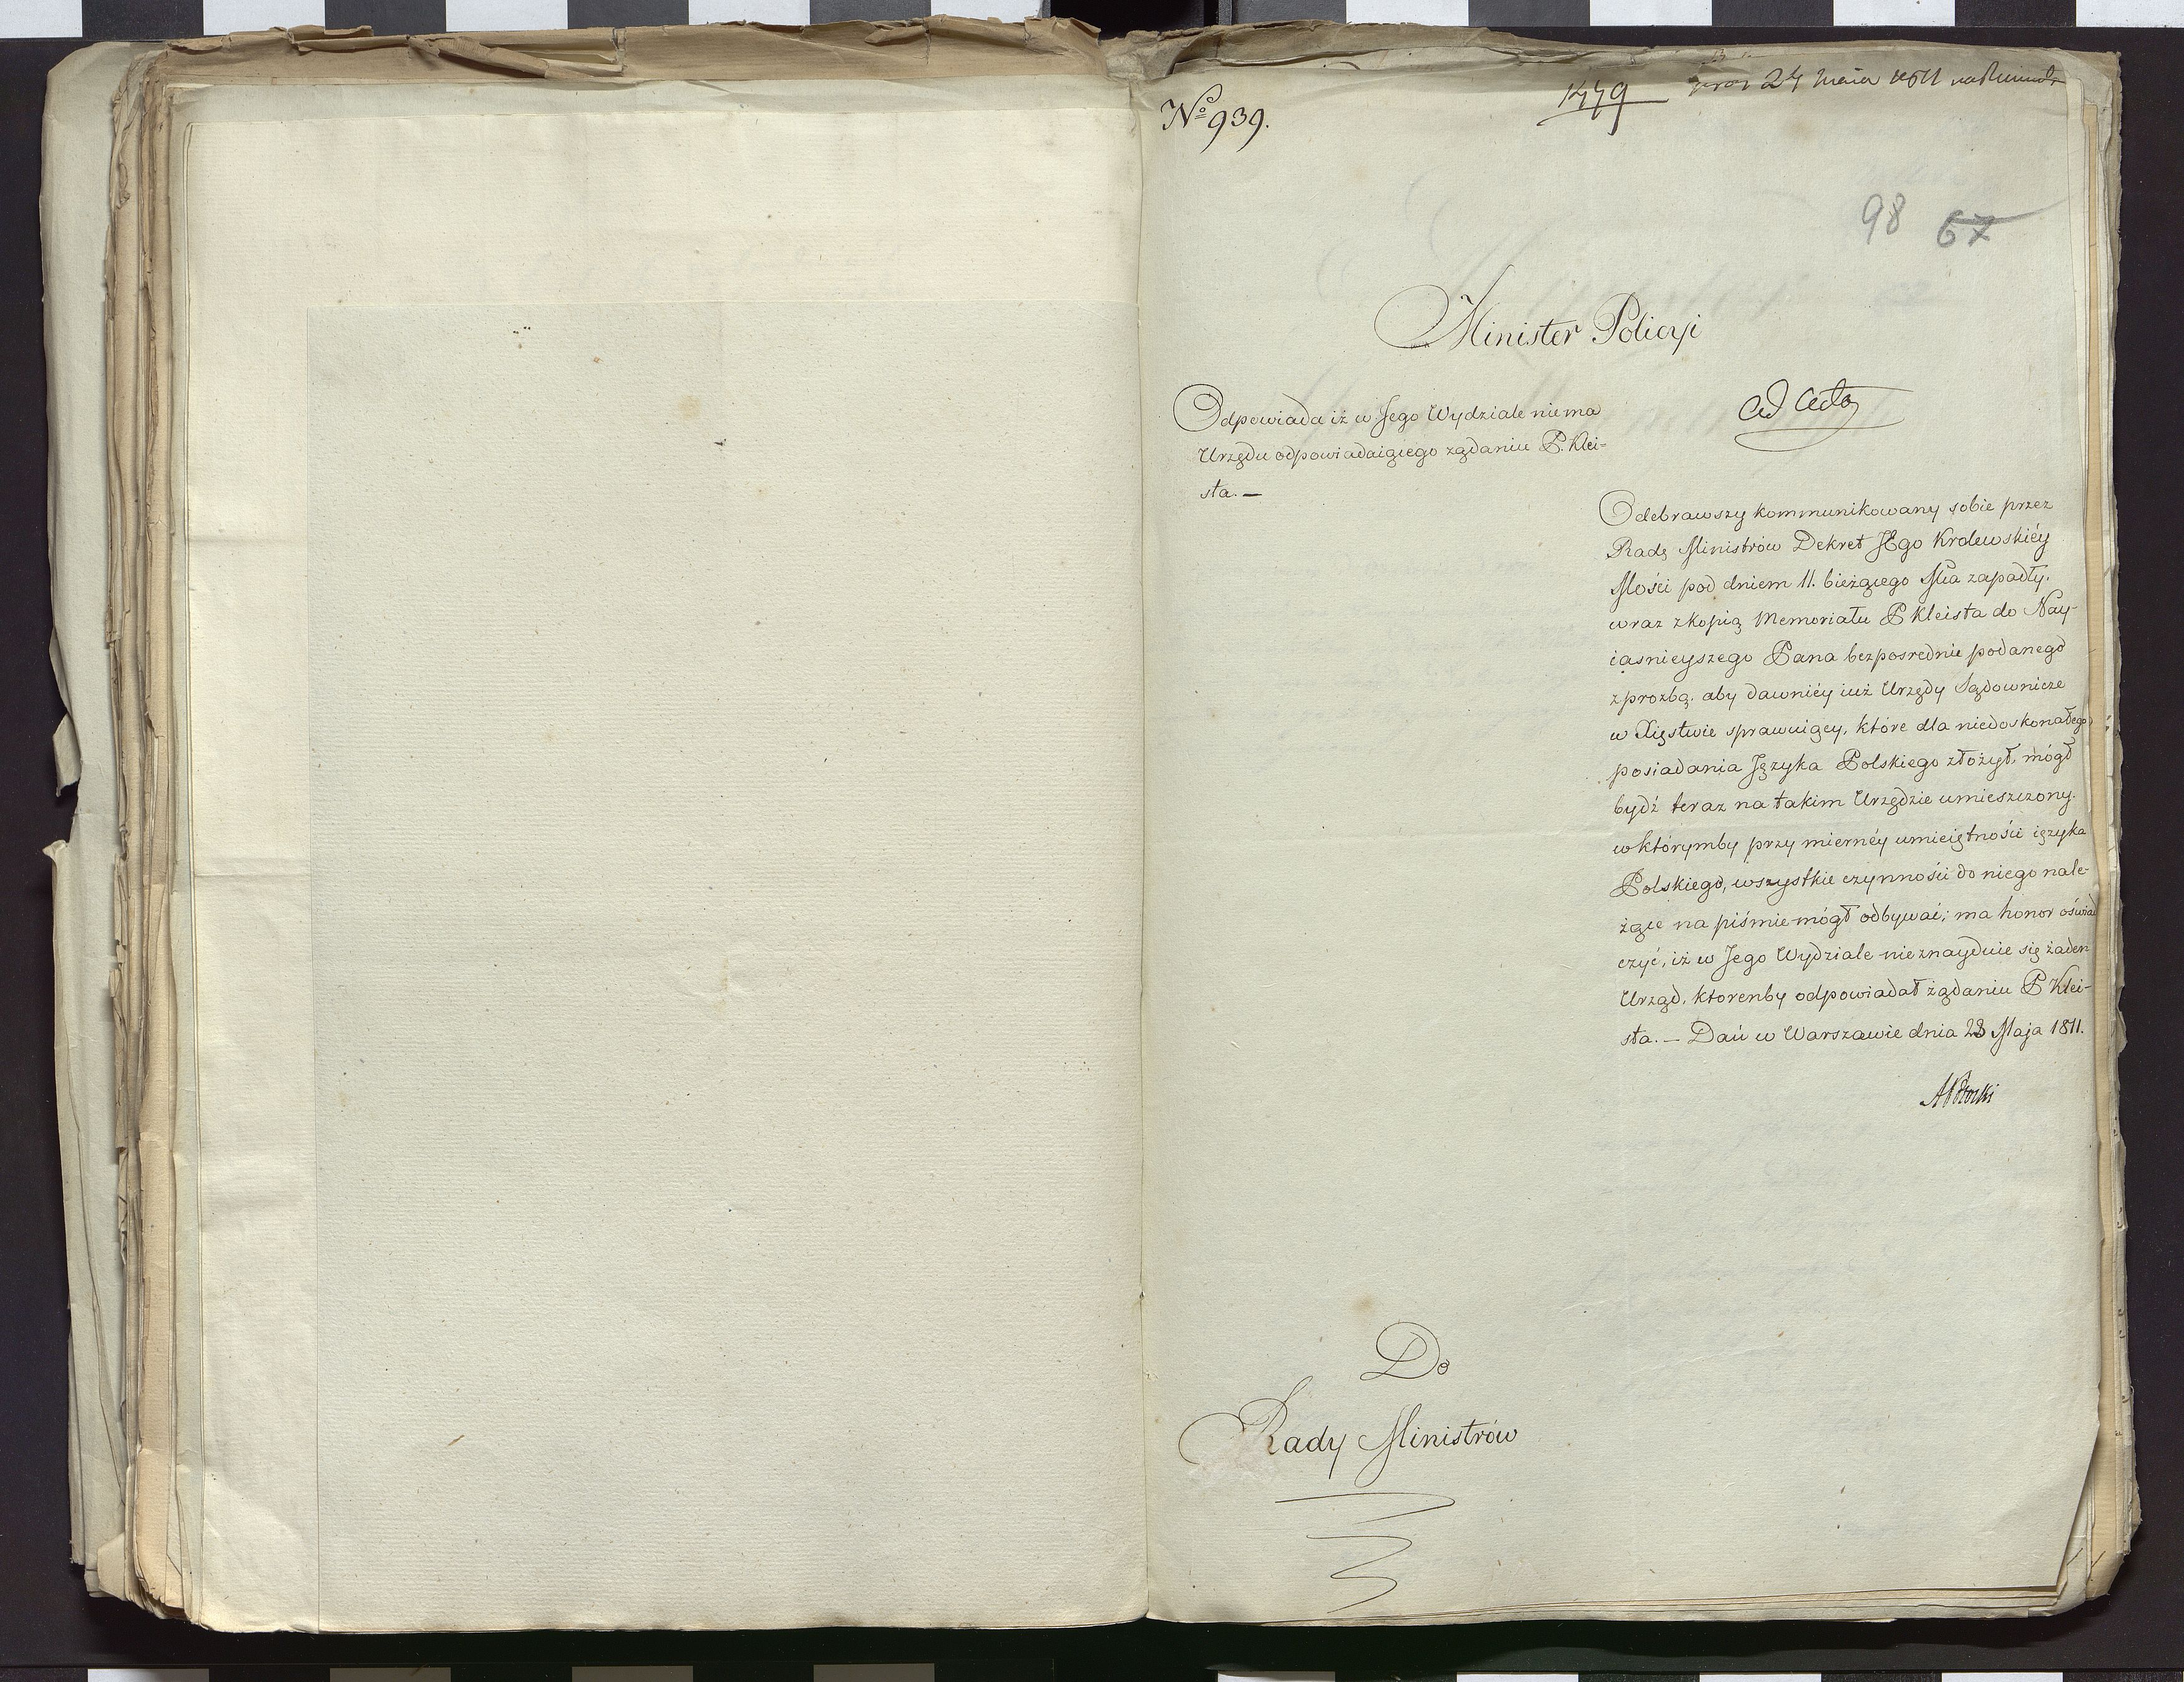 No 939.
1479
24 maia 1811
98 67
Minister Policyi
Odpowiada iż w Jego Wydziale niema
Urzędu odpowiadaiącego ządaniu P. Klei-
sta. —
Ad acta
Odebrawszy kommunikowany sobie przez
Radę Ministrów Dekret JEgo Krolewskiéy
Mości pod dniem 11. bieżącego Mca zapadły.
wraz zkopią Memoriału P Kleista do Nay-
iasnieyszego Pana bezposrednie podanego
zprozbą, aby dawniéy iuż Urzędy Sądownicze
w Xięstwie sprawuiący, które dla niedoskonałego
posiadania Języka Polskiego złożył, mógł
bydź teraz na takim Urzędzie umieszczony.
wktórymby przy miernéy umieiętności ięzyka
Polskiego, wszystkie czynności do niego nale-
żące na piśmie mógł odbywać; ma honor oświad
czyć, iż w Jego Wydziale nieznayduie się żaden
Urząd, ktorenby odpowiadał żądaniu P Klei-
sta. — Dań w Warszawie dnia 23 Maja 1811.
APotocki
Do
Rady Ministrów